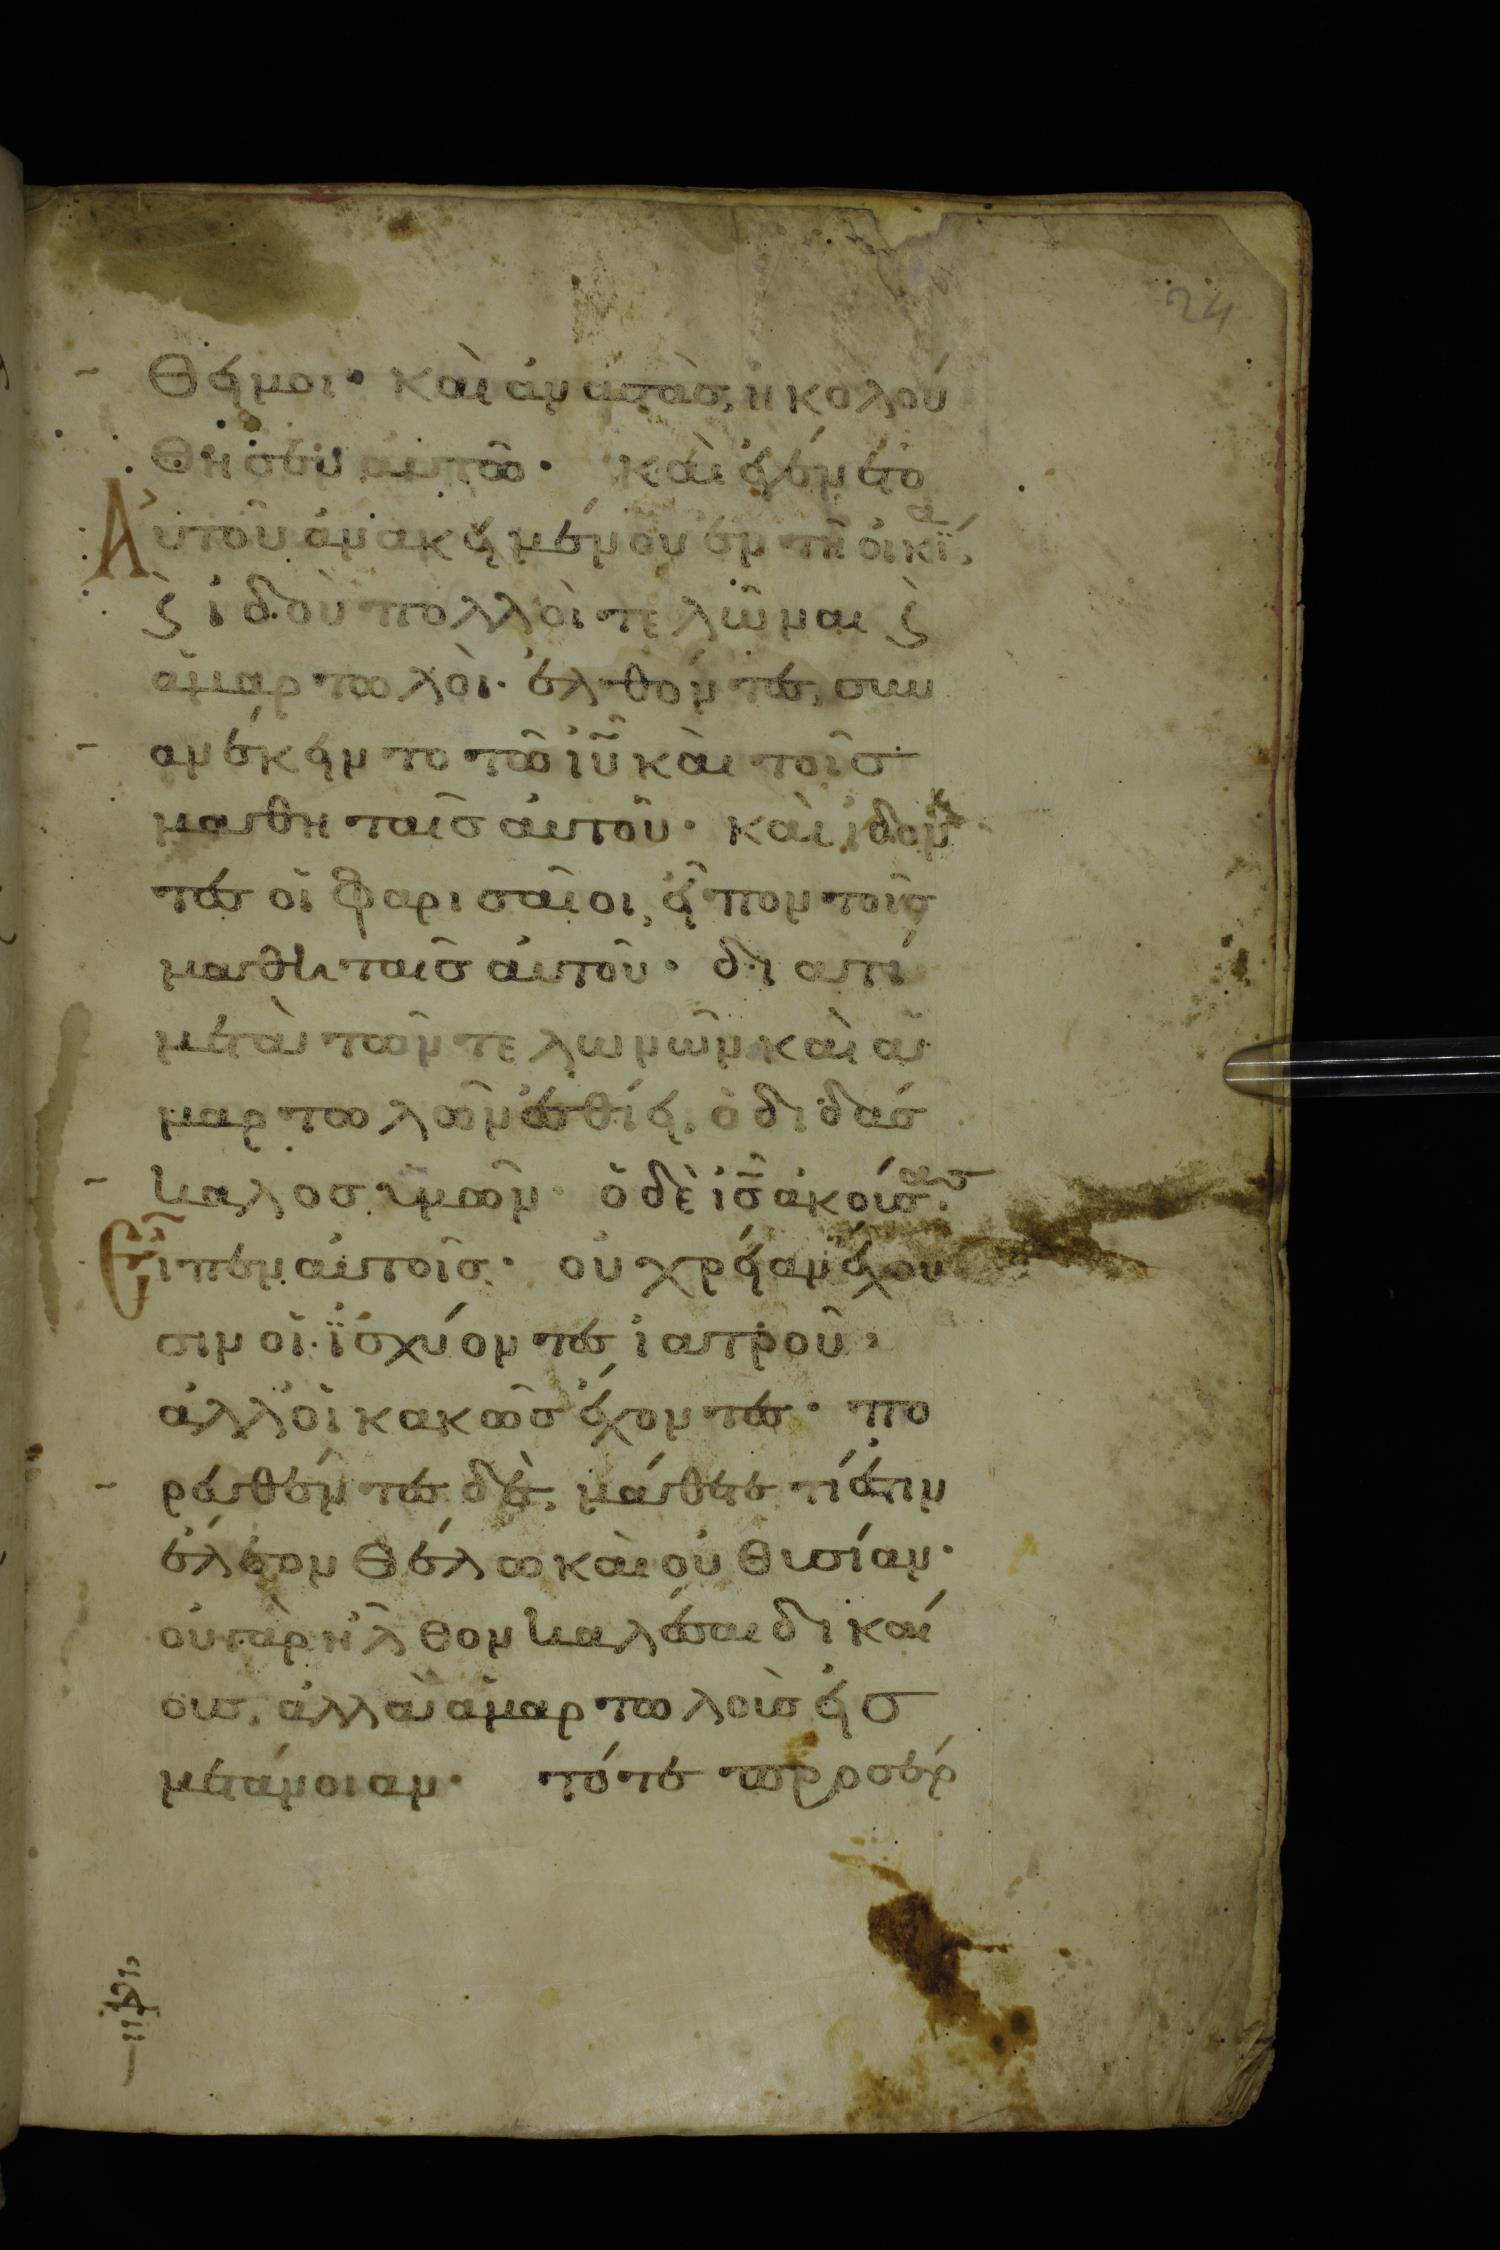 24
θει μοι· καὶ ἀναστὰς, ἠκολού
θησεν αυτῶ· καὶ ἐγένετο
Ἀυτοῦ ἀνακειμένου ἐν τῆ οἰκία,
ϗ ἰδοὺ πολλοὶ τελῶναι ϗ
ἁμαρτωλοὶ· ἐλθόντες, συν
ανέκειντο τῶ ἰῦ καὶ τοῖσ
μαθηταῖσ ἀυτοῦ· καὶ ἰδόν
τεσ οἱ φαρισαῖοι, εἶπον τοῖσ
μαθηταῖσ ἀυτοῦ· διατί
μετὰ τῶν τελωνῶν καὶ ἁ
μαρτωλῶν ἐσθίει, ὁ διδάσ
καλοσ ὑμῶν· ὁ δὲ ἰσ̅ ἀκούσασ,
Εἶπεν αὐτοῖσ· οὐ χρείαν ἔχου
σιν οἱ ἰσχύοντεσ ἰατροῦ·
ἀλλ οἱ κακῶσ ἔχοντεσ· πο
ρευθέντεσ δὲ, μάθετε τί ἐστιν
ἔλεον θέλω καὶ οὐ θυσίαν·
οὐ γὰρ ἦλθον καλέσαι δικαί
ουσ, ἀλλὰ ἁμαρτωλοὺσ εἰσ
μετάνοιαν· τότε προσέρ